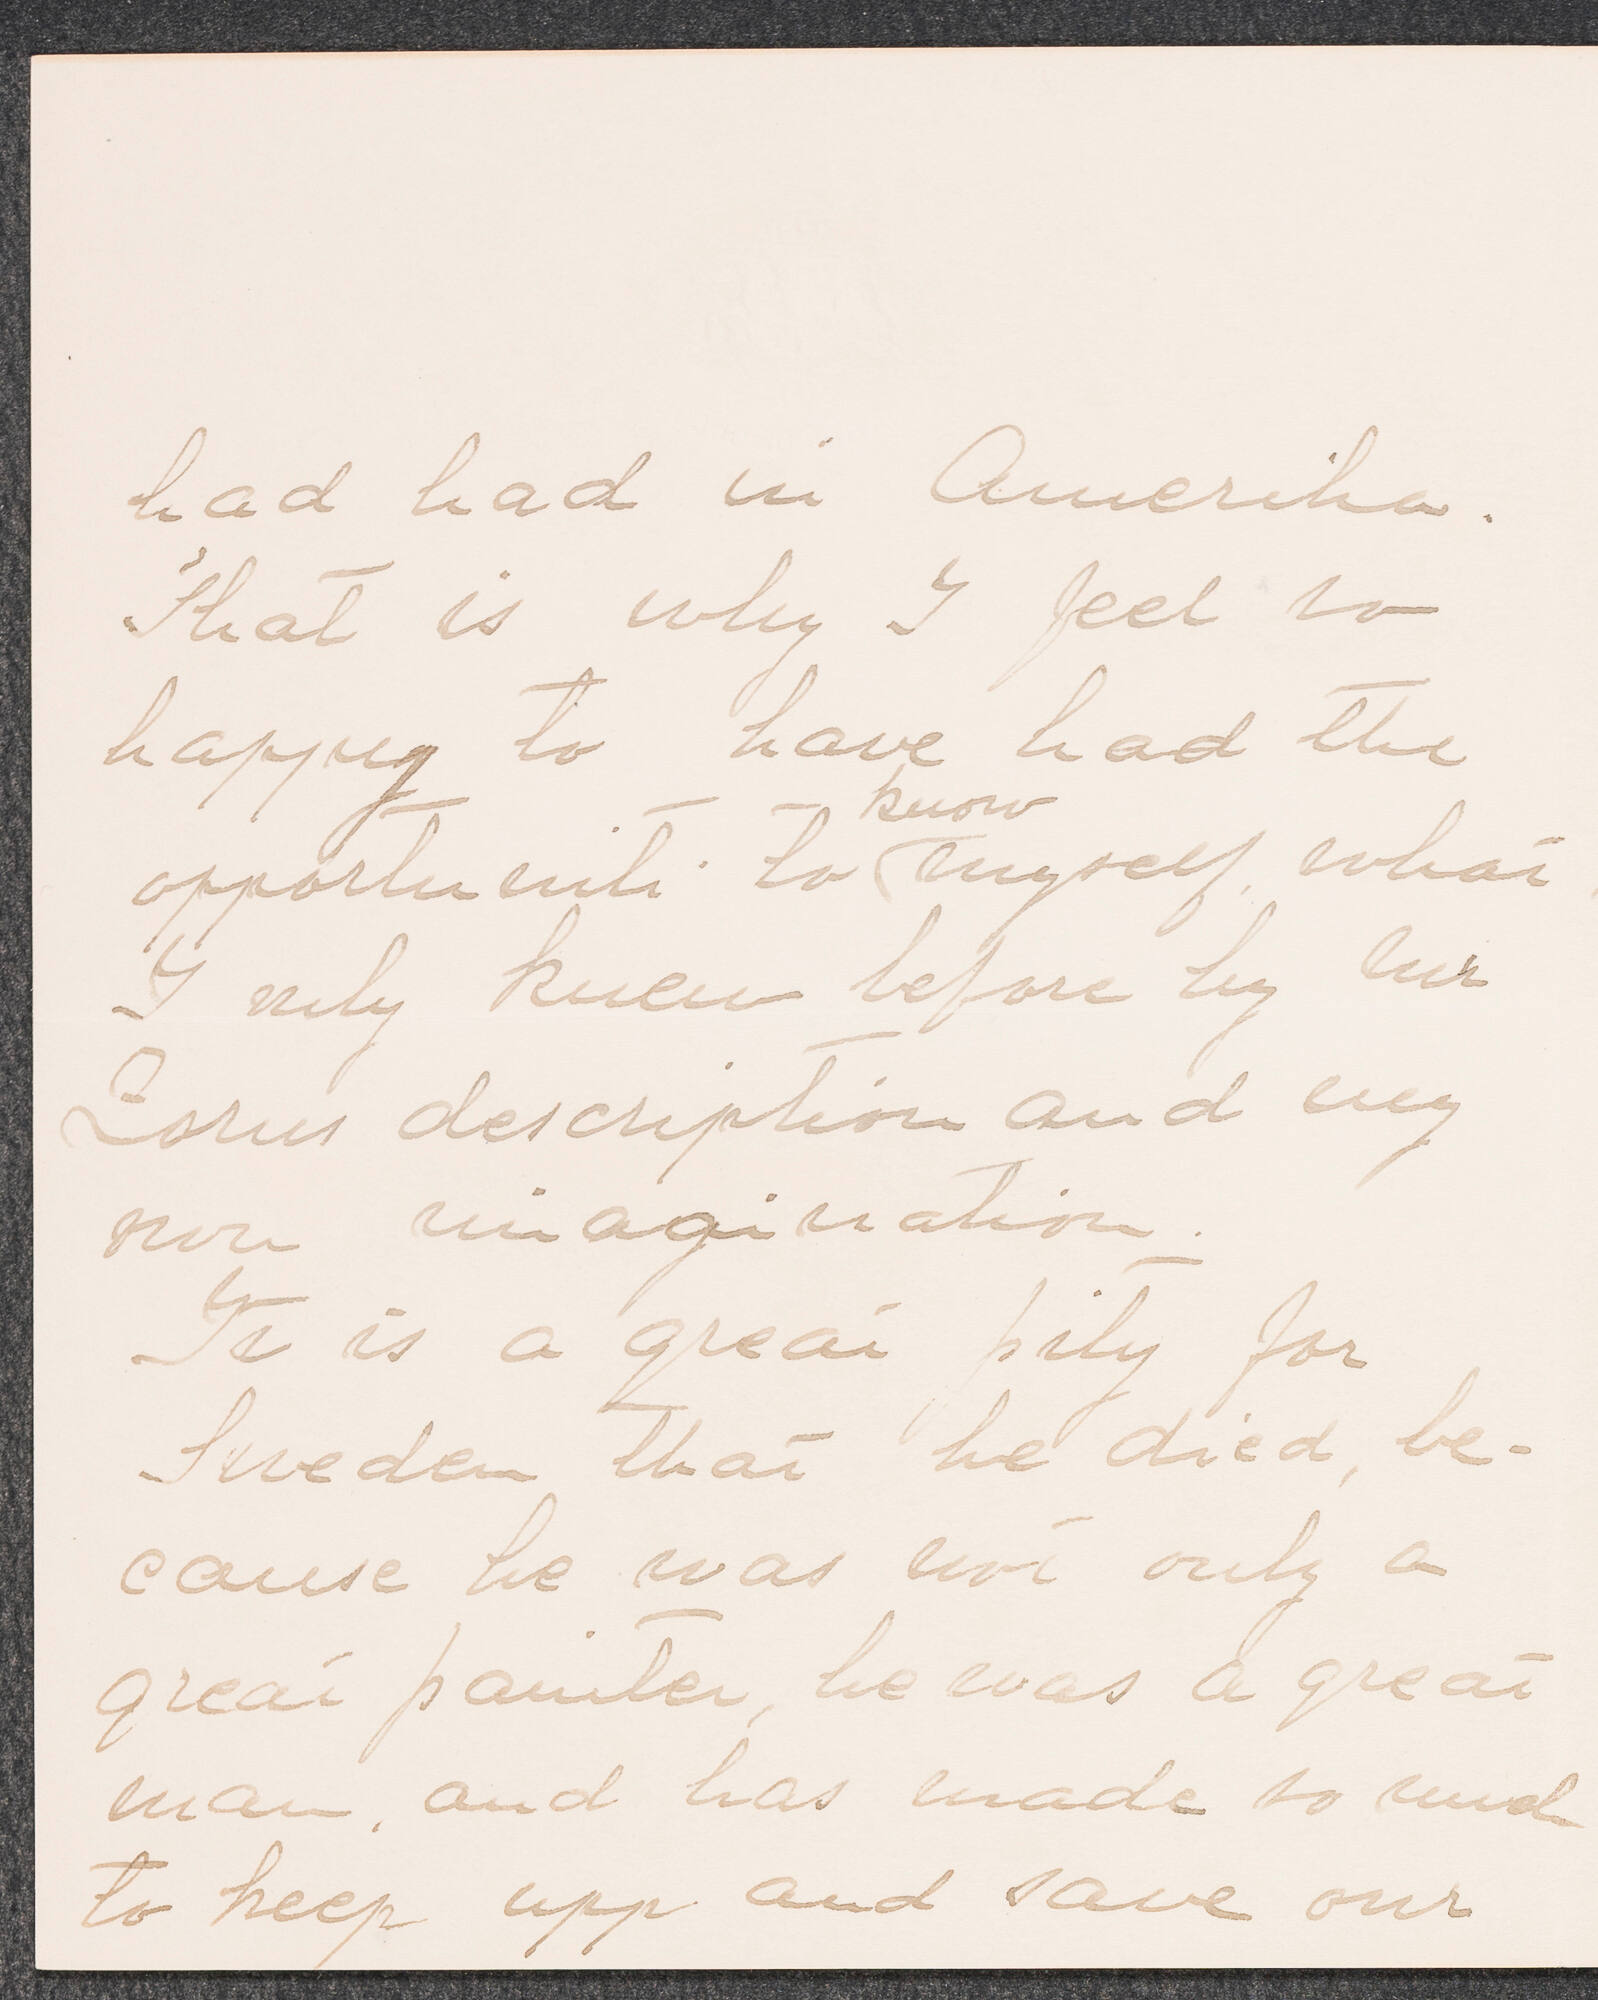 had had in Amerika.
That is why I feel so
happy to have had the
know
opportuniti to myself, what
I only knew before by mr
Zorns description and my
own imagination.
It is a great pity for
Sweden that he died, be-
cause he was not only a
great painter, he was a great
man, and has made so much
to keep upp and save our